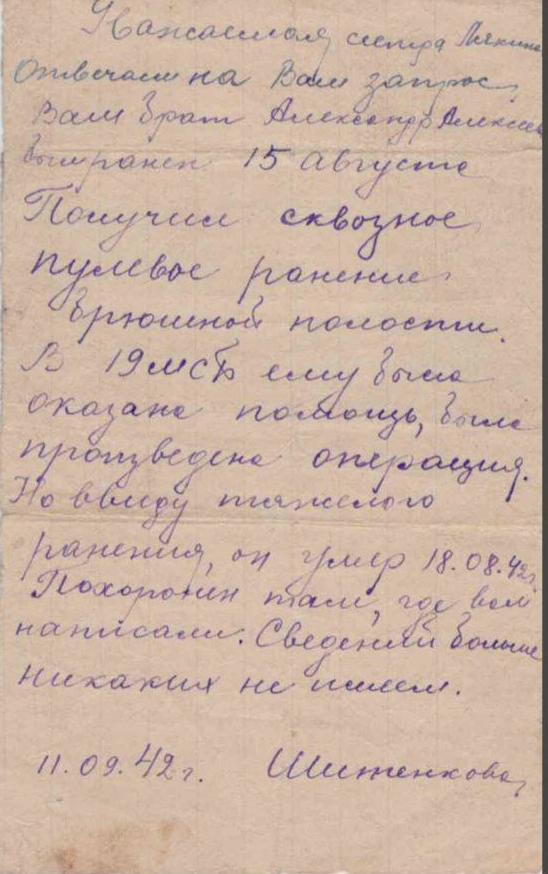 Уважаемая сестра
Отвечаем на Ваш запрос
Ваш брат Александр Алексеев
был ранен 15 августа
Получил сквозное
пулевое ранение
брюшной полости.
В 19 мсб ему была
оказана помощь, была
произведена операция.
Но ввиду тяжелого
ранения, он умер 18.08.42г.
Похоронен там, где вам
написали. Сведений больше
никаких не имеем.
11.09.42г. Шитенкова